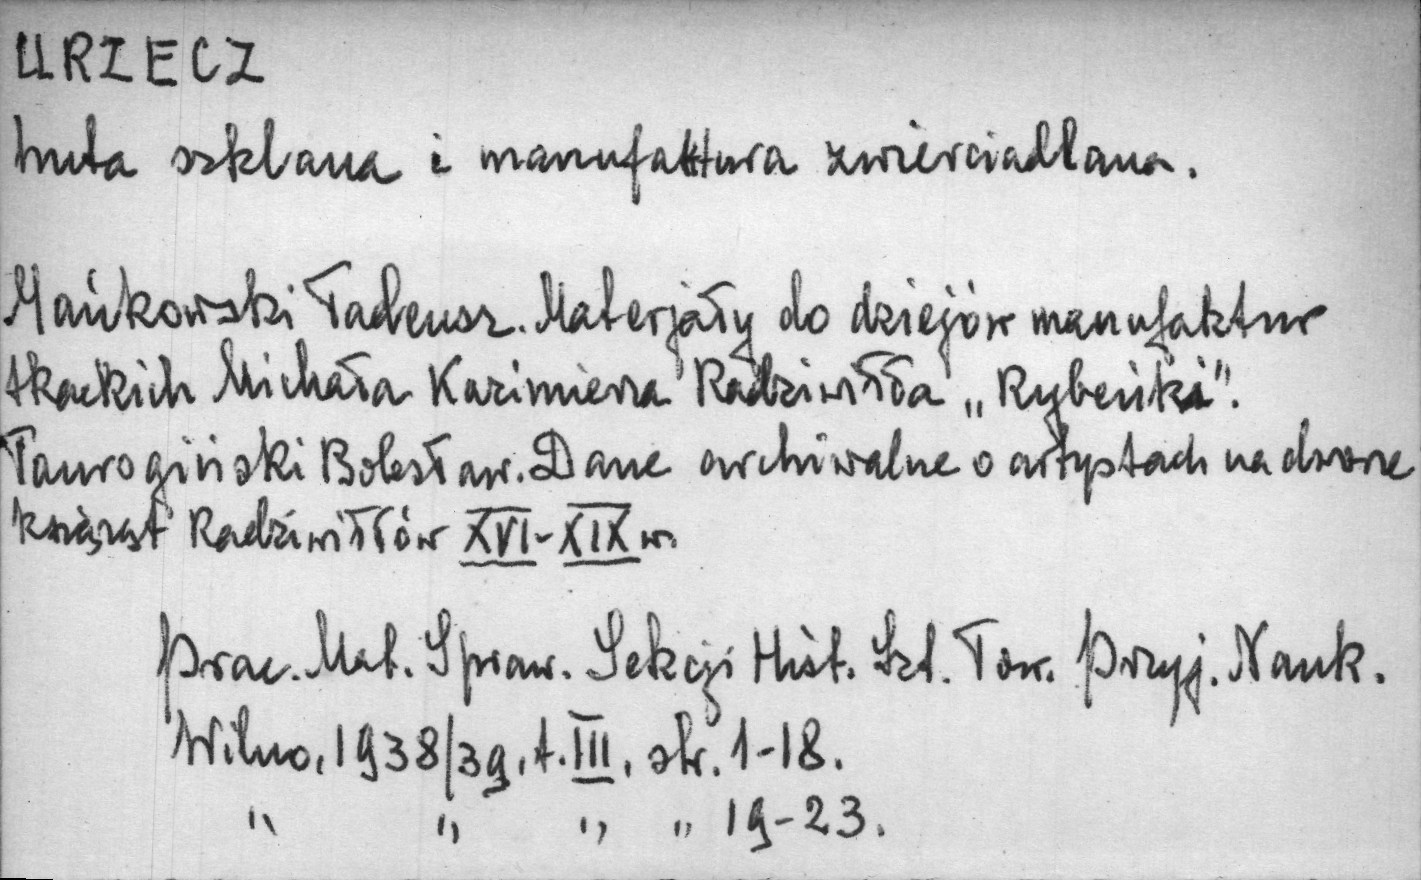 URZECZ
huta szklana i manufaktura zwierciadlana.
Mańkowski Tadeusz. Materjały do dziejów manufaktur
tkackich Michała Kazimierza Radziwiłła „Rybeńki”.
Taurogiński Bolesław. Dane archiwalne o artystach na dworze
książąt Radziwiłłów XVI-XIX w.
Prac. Mat. Spraw. Sekcji Hist. Szt. Tow. Przyj. Nauk.
Wilno, 1938/39, t. III, str. 1-18.
" " " " 19-23.